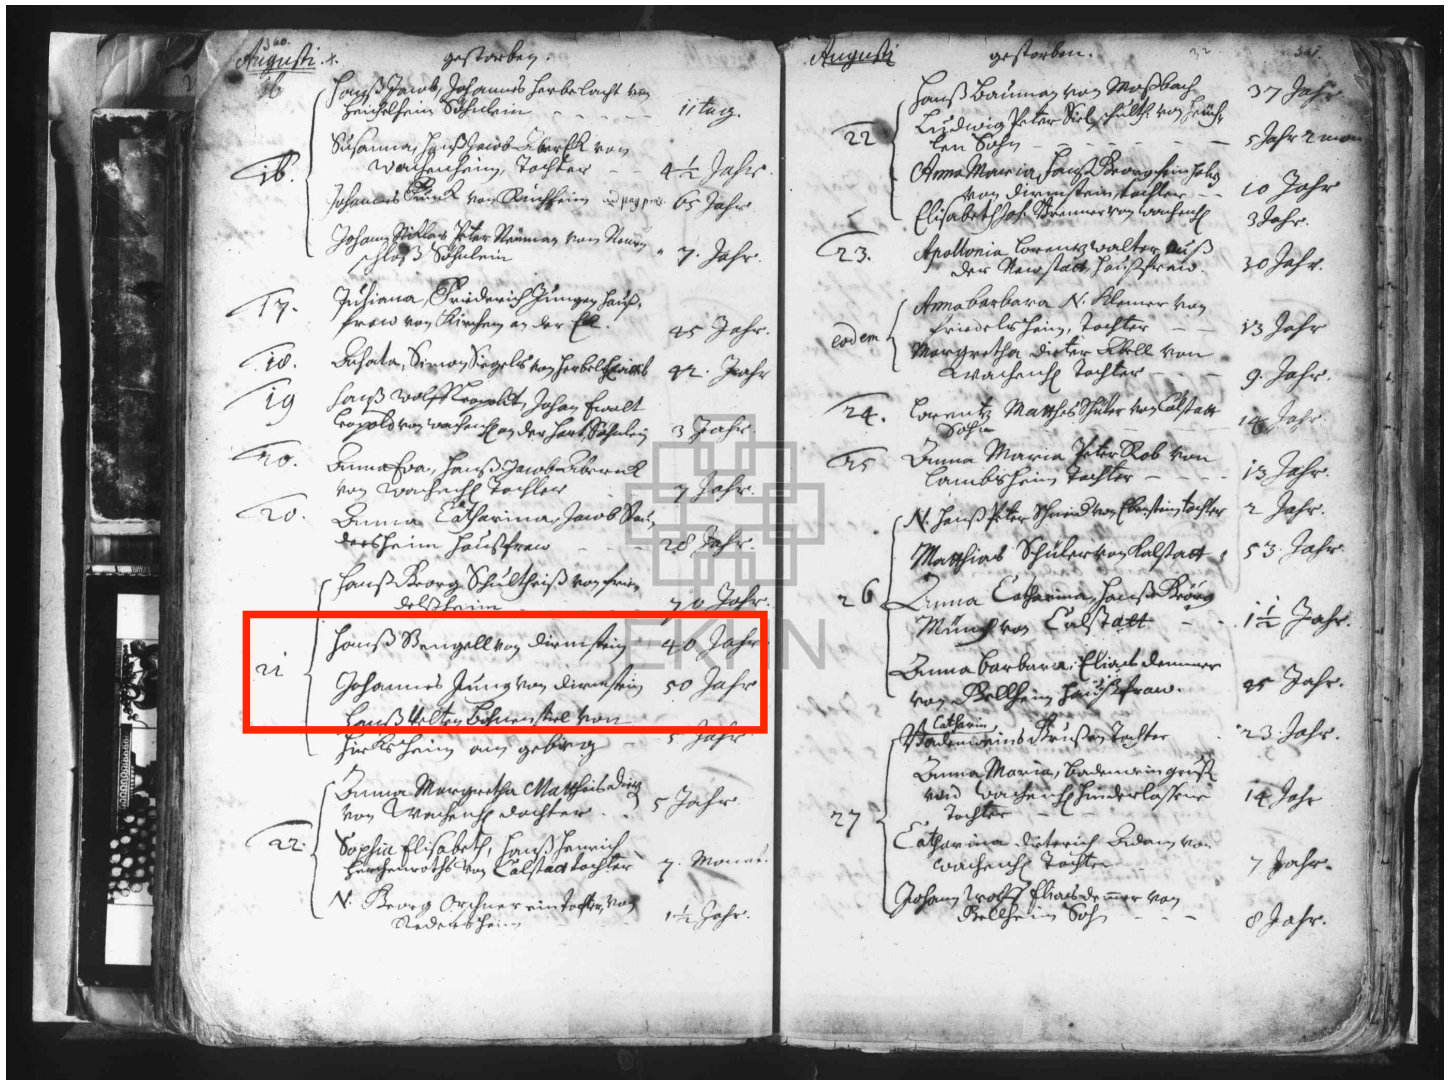 360.
Augusti. gestorben.
16 Hanß Jacob, Johannes Herbelacht von
Heichelheim Söhnlein 11 tag.
16. Susanna, Hanß Jacob von
Wachenheim, Tochter 4½ Jahr.
Johannes von Kirchheim 65 Jahr
Johann Niklas Peter Neuman von
Söhnlein 7. Jahr.
17. Juliana, Friederich Jungen Hauß-
fraw von Kirchen an der Eck. 45 Jahr.
18. Simon Siegels von 42. Jahr
19 Hanß Wolff Leopoldt, Johan Ewalt
Leopold von Wachenh. an der Hart, Söhnlein 3 Jahr.
20. Anna Eva, Hanß Jacob
von Wachenh. Tochter 7 Jahr.
20. Anna Catharina, Jacob
Haußfraw 28 Jahr.
Hanß Georg Schultheiß von Frie-
delßheim 70 Jahr.
21 Hanß Bengell von Dirmstein 40 Jahr
Johannes Jung von Dirmstein 50 Jahr
Hanß Velten Bohnenstiel von
am gebirg 5 Jahr
Anna Margretha Mattheis
von Wachenh. dochter 5 Jahr.
22. Sophia Elisabeth, Hanß Henrich
von Calstatt tochter 7. Monat.
N. Georg tochter, von
1½ Jahr.
361.
Augusti gestorben.
Hanß Bauman von Moßbach 37 Jahr
22 Ludwig Peter Siel, Schulth. von
Sohn 5 Jahr 2 mon
Anna Maria, Hanß Georg
von Dirmstein, tochter 10 Jahr
Elisabeth Joh. Brenner von Wachenh. 3 Jahr.
23. Apollonia Lorentz Walter auß
der Newstatt, Haußfraw. 30 Jahr.
eodem Anna barbara N. Klemer von
Friedelsheim, Tochter 13 Jahr
Margretha dieter Abell von
Wachenh. Tochter 9. Jahr.
24. Lorentz Matthes Schüler von Calstatt
Sohn Jahr.
25 Anna Maria Peter Rob von
Lambsheim Tochter 13 Jahr.
N. Hanß Peter Schmid von Ebenstein tochter 2 Jahr.
Matthias Schüler von Kalstatt 53 Jahr.
26 Anna Catharina, Hanß Georg
Münch von Calstatt 1½ Jahr.
Anna barbara, Elias Demmer
von Bellheim Haußfraw. 45 Jahr.
Catharin
Tochter 23. Jahr.
27 Anna Maria,
von Wachenh. hinderlaßene
Tochter 14 Jahr
Catharina dieterich Adam von
Wachenh. Tochter 7 Jahr.
Johann Wolff Elias demmer von
Bellheim Sohn 8 Jahr.
EKHN